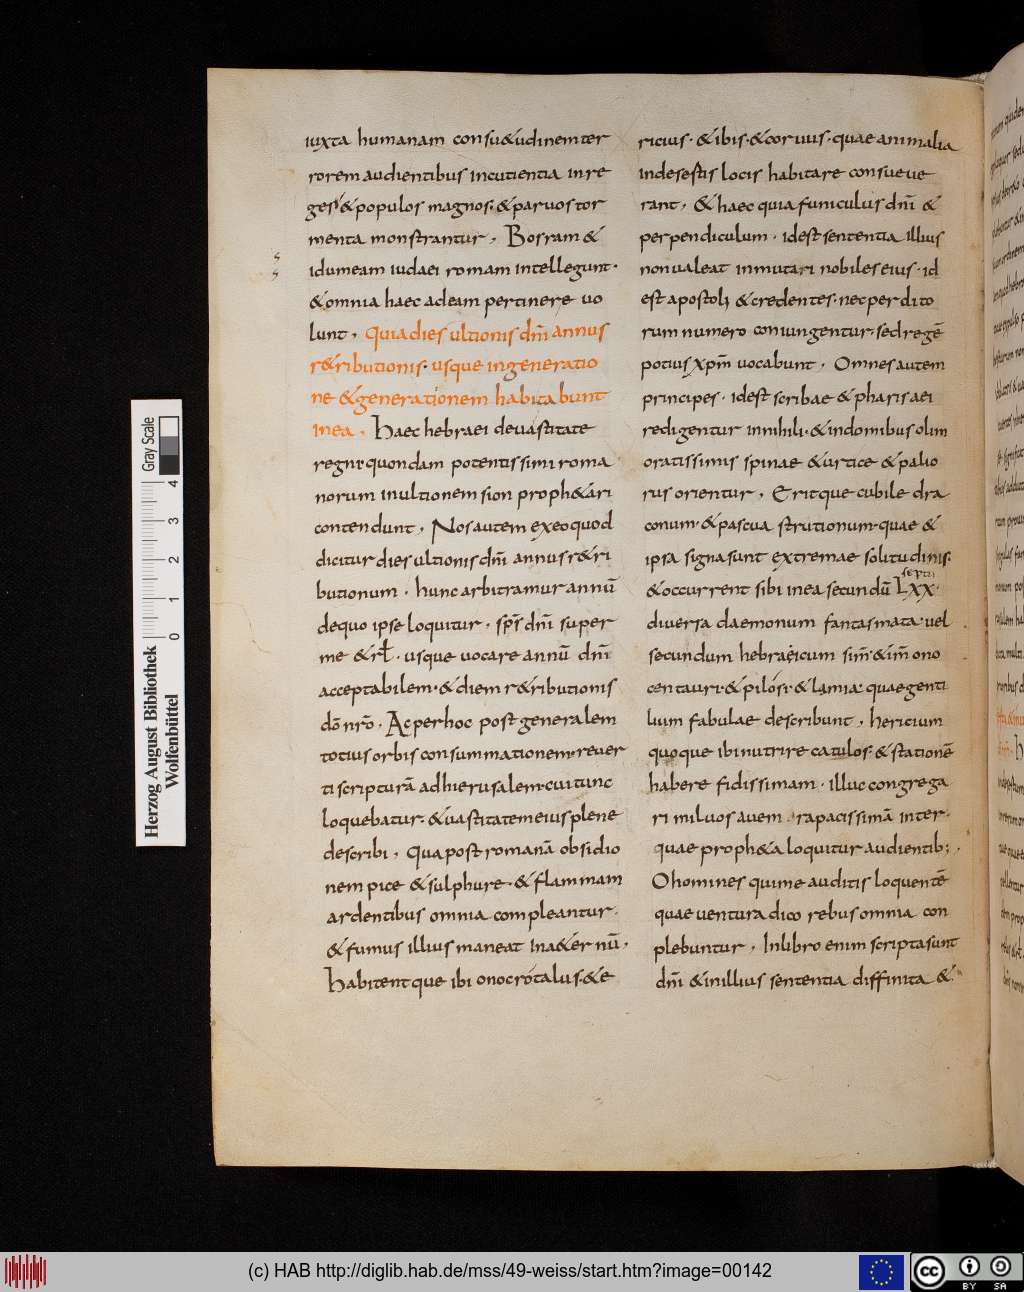 iuxta humanam consu&udinem ter
rorem audientibus incutientia in re
ges & populos magnos & paruos tor
menta monstrantur. Bosram &
idumeam iudaei romam intellegunt.
& omnia haec ad eam pertinere uo
lunt. Quia dies ultionis dm̄ annus
r&ributionis. usque in generatio
ne & generationem habitabunt
in ea. Haec hebraei deuastitate
regni quondam potentissimi roma
norum in ultionem sion proph&ari
contendunt. Nos autem ex eo quod
dicitur dies ultionis dm̄ annus r&ri
butionum. hunc arbitramur annū
de quo ipse loquitur. sp̄s dm̄ super
me & rł. usque uocare annū dm̄
acceptabilem. & diem r&ributionis
dō nr̄o. Ac per hoc post generalem
totius orbis consummationem reuer
ti scripturā ad hierusalem cui tunc
loquebatur. & uastitatem eius plene
describi. Qua post romanā obsidio
nem pice & sulphure & flammam
ardentibus omnia compleantur.
& fumus illius maneat in a&ernū.
Habitentque ibi onocrotalus. & e
ricius. & ibis. & coruus. quae animalia
in desestis locis habitare consueue
rant. & haec quia funiculus dm̄ &
perpendiculum. id est sententia illius
non ualeat inmutari nobiles eius. id
est apostoli & credentes. nec perdito
rum numero coniungentur. sed regē
potius xp̄m uocabunt. Omnes autem
principes. id est scribae & pharisaei
redigentur in nihili. & in domibus olim
oratissimis spinae & urtice & palio
rus orientur. Eritque cubile dra
conum. & pascua strutionum. quae &
ipsa signa sunt extremae solitudinis.
& occurrent sibi in ea secundū Lxx.
diuersa daemonum fantasmata. uel
secundum hebraeicum sim̄ & im̄ ono
centauri. & pilosi. & lamia. quae genti
lium fabulae describunt. hericium
quoque ibi nutrire catulos. & stationē
habere fidissimam. illuc congrega
ri miluos auem. rapacissimā inter.
quae proph&a loquitur audientib;.
O homines qui me auditis loquentē
quae uentura dico rebus omnia con
plebuntur. In libro enim scripta sunt
dm̄ & in illius sententia diffinita &
Gray Scale
4 3 2 1 0
Herzog August Bibliothek
Wolfenbüttel
(c) HAB http://diglib.hab.de/mss/49-weiss/start.htm?image=00142
cc
BY SA